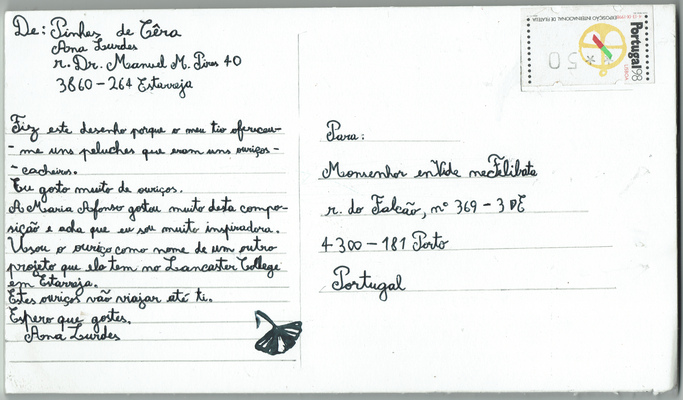 De: Pinhas de Cêra
Ana Lurdes
r. Dr. Manuel M. Pires 40
3860-264 Estarreja
Portugal 98
EXPOSIÇÃO INTERNACIONAL DE FILATELIA
LISBOA
50
Fiz este desenho porque o meu tio ofereceu-
-me uns peluches que eram uns ouriços-
-cacheiros.
Eu gosto muito de ouriços.
A Maria Afonso gostou muito desta compo-
sição e acha que eu sou muito inspiradora.
Usou o ouriço como nome de um outro
projeto que ela tem no Lancaster College
em Estarreja.
Estes ouriços vão viajar até ti.
Espero que gostes.
Ana Lurdes
Para:
Monsenhor enVide neFelibata
r. do Falcão, nº 369 - 3 DE
4300-181 Porto
Portugal